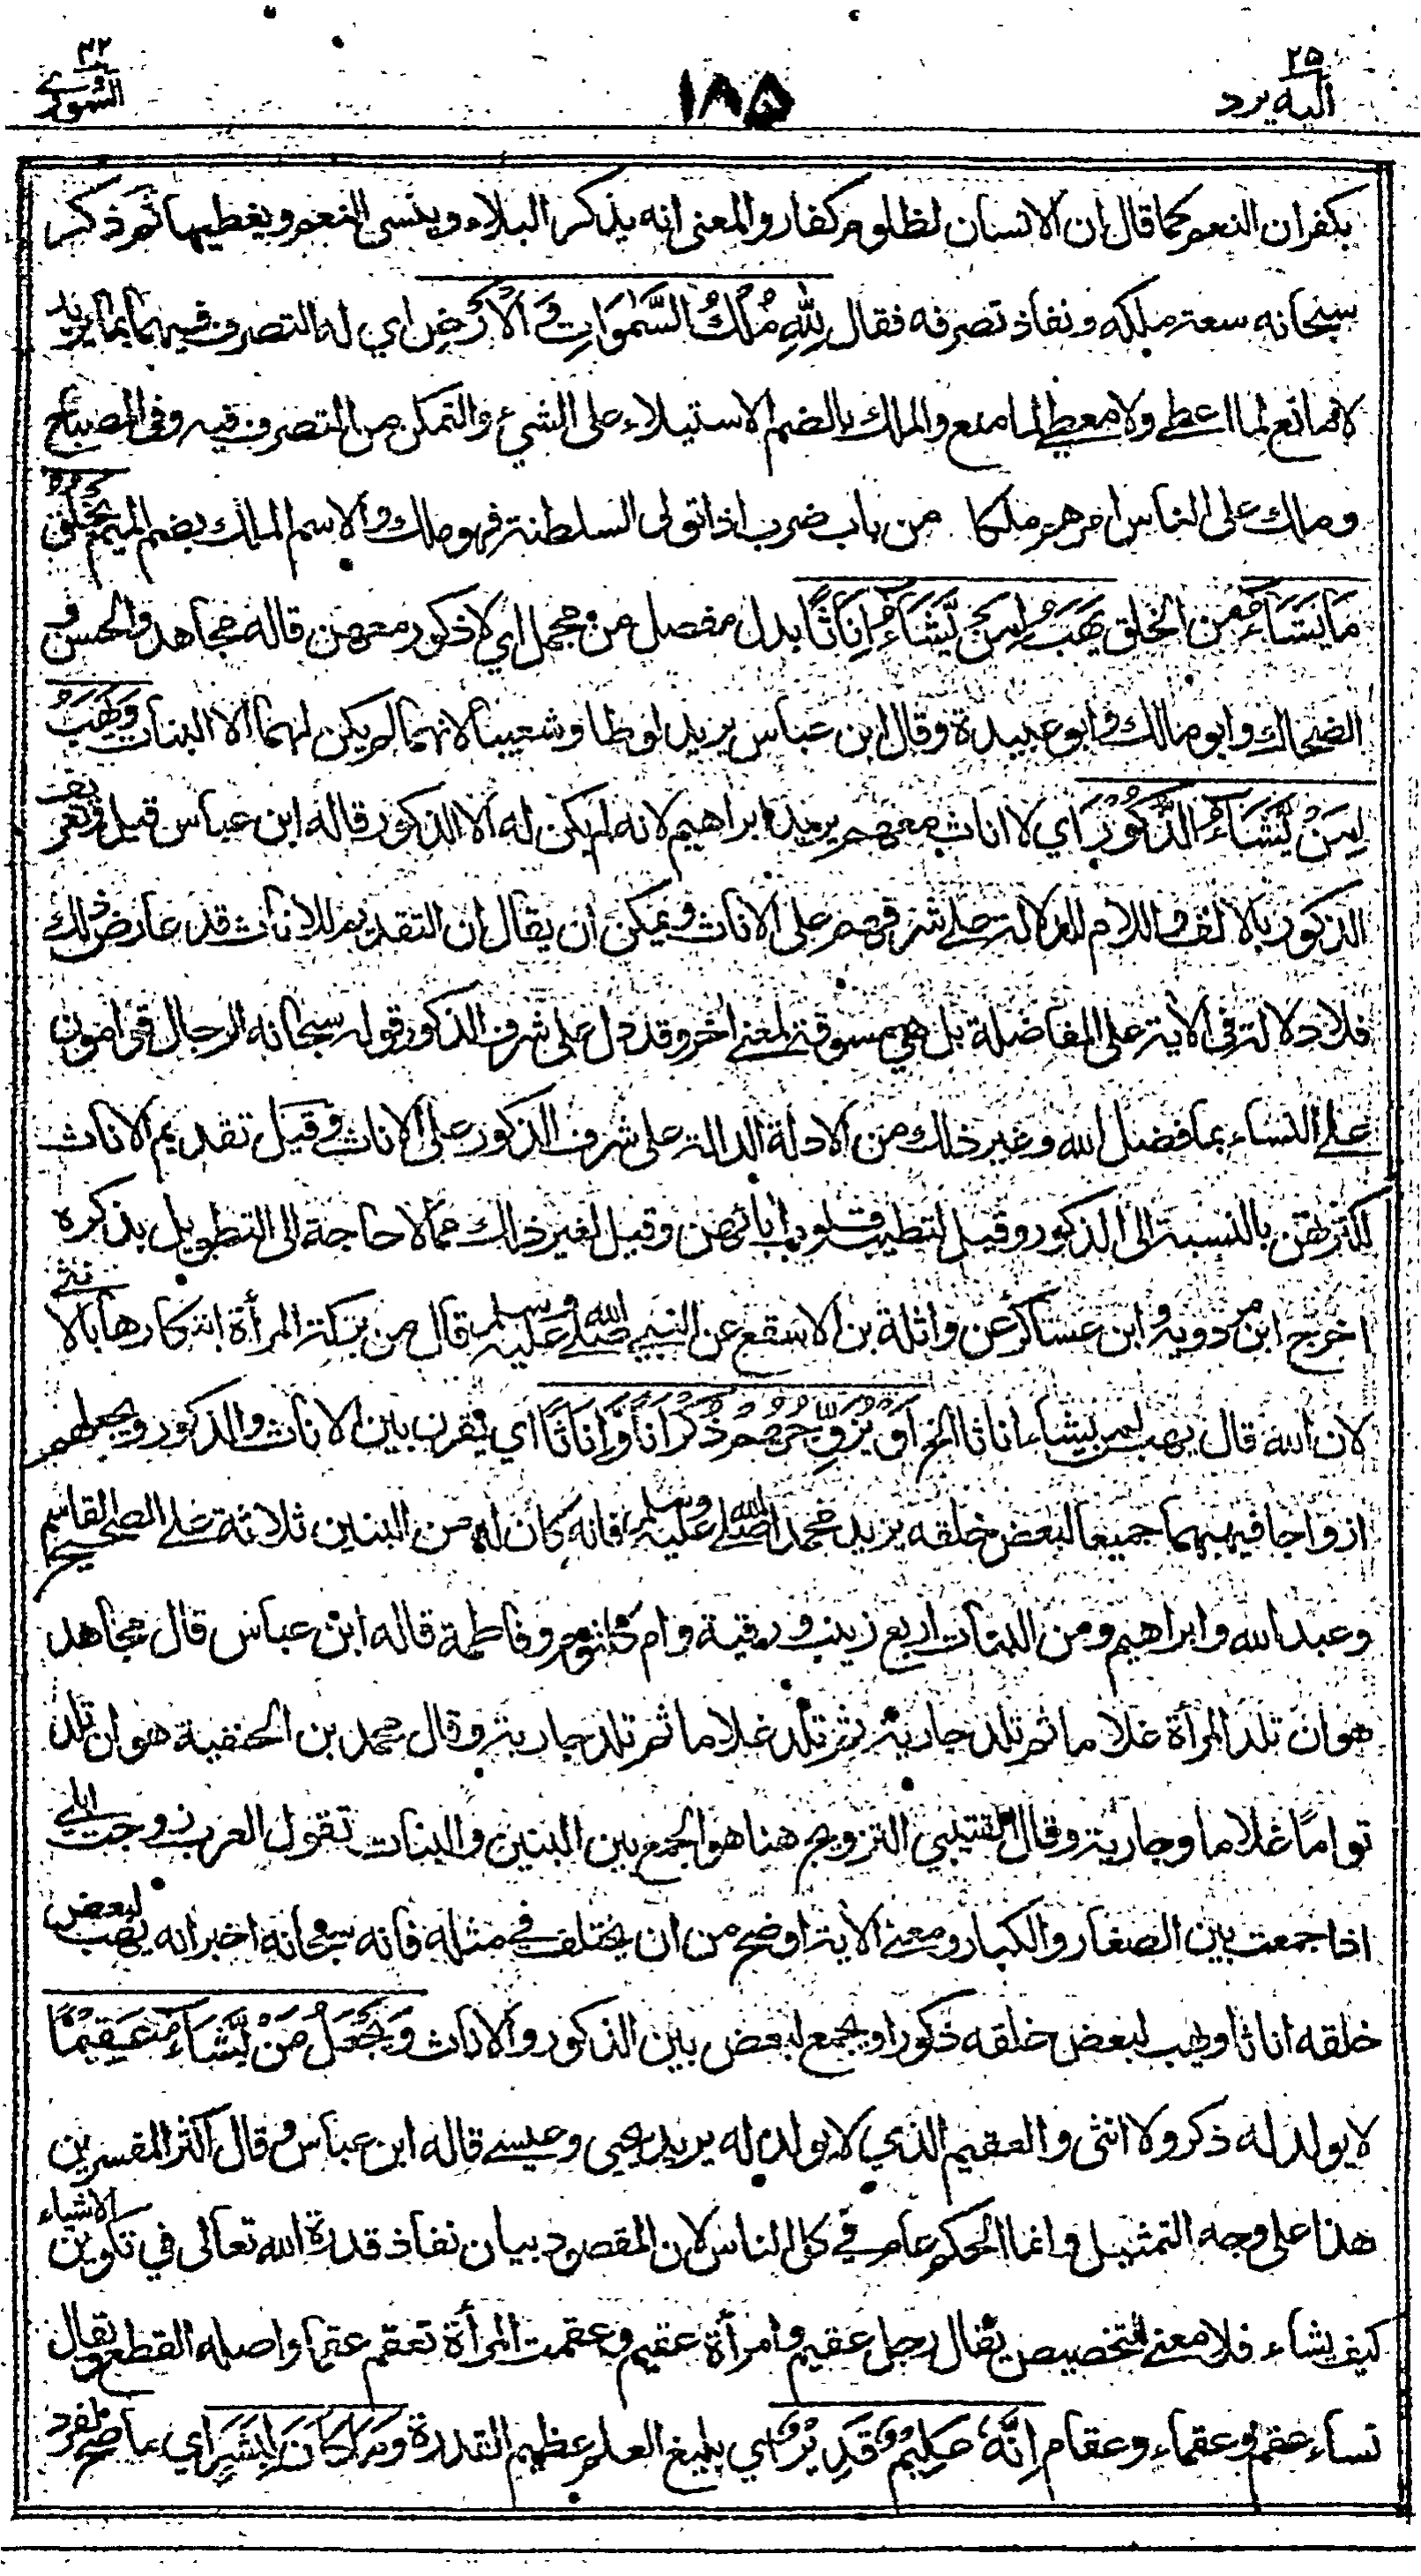 ٢٥
اليه يرد
١٨٥
٤٢
الشورى
بكفران النعم كما قال ان الانسان لظلوم كفار والمعنى انه يذكر البلاء وينسى النعم ويغطيها ثم ذكر
سبحانه سعة ملكه ونفاذ تصرفه فقال لِلّٰهِ مُلْكُ السَّمٰوَاتِ وَ الْاَرْضِ اي له التصرف فيهما بما يريد
لا مانع لما اعطى ولا معطي لما منع والملك بالضم الاستيلاء على الشيء والتمكن من التصرف فيه وفي المصباح
وملك على الناس امرهم ملكا من باب ضرب اذا تولى السلطنة فهو ملك والاسم الملك بضم الميم يَخْلُقُ
مَا يَشَاءُ من الخلق يَهَبُ لِمَنْ يَّشَاءُ اِنَاثًا بدل مفصل من مجمل اي لا ذكور معهن قاله مجاهد والحسن و
الضحاك وابو مالك وابو عبيدة وقال ابن عباس يريد لوطا وشعيبا لانهما لم يكن لهما الا البنات وَيَهَبُ
لِمَنْ يَّشَاءُ الذُّكُوْرَ اي لا اناث معهم يريد ابراهيم لانه لم يكن له الا الذكور قاله ابن عباس قيل وتعريف
الذكور بالالف واللام للدلالة على شرفهم على الاناث ويمكن ان يقال ان التقديم للاناث قد عارض ذلك
فلا دلالة في الآية على المفاضلة بل هي مسوقة لمعنى آخر وقد دل على شرف الذكور قوله سبحانه الرجال قوامون
على النساء بما فضل الله وغير ذلك من الادلة الدالة على شرف الذكور على الاناث وقيل تقديم الاناث
لكثرتهن بالنسبة الى الذكور وقيل لتطييب قلوب آبائهن وقيل لغير ذلك مما لا حاجة الى التطويل بذكره
اخرج ابن مردويه وابن عساكر عن واثلة بن الاسقع عن النبي صلى الله عليه وسلم قال من بركة المرأة ابتكارها بالانثى
لان الله قال يهب لمن يشاء اناثا الخ اَوْ يُزَوِّجُهُمْ ذُكْرَانًا وَّاِنَاثًا اي يقرن بين الاناث والذكور ويجعلهم
ازواجا فيهبهما جميعا لبعض خلقه يريد محمدا صلى الله عليه وسلم فانه كان له من البنين ثلاثة على الصحيح القاسم
وعبد الله وابراهيم ومن البنات اربع زينب ورقية وام كلثوم وفاطمة قاله ابن عباس قال مجاهد
هو ان تلد المرأة غلاما ثم تلد جارية ثم تلد غلاما ثم تلد جارية وقال محمد بن الحنفية هو ان تلد
تواما غلاما وجارية وقال القتيبي التزويج هنا هو الجمع بين البنين والبنات تقول العرب زوجت ابلي
اذا جمعت بين الصغار والكبار ومعنى الآية اوضح من ان يختلف في مثله فانه سبحانه اخبر انه يهب لبعض
خلقه اناثا ويهب لبعض خلقه ذكورا ويجمع لبعض بين الذكور والاناث وَيَجْعَلُ مَنْ يَّشَاءُ عَقِيْمًا
لا يولد له ذكر ولا انثى والعقيم الذي لا يولد له يريد يحيى وعيسى قاله ابن عباس وقال اكثر المفسرين
هذا على وجه التمثيل وانما الحكم عام في كل الناس لان المقصود بيان نفاذ قدرة الله تعالى في تكوين الاشياء
كيف يشاء فلا معنى للتخصيص يقال رجل عقيم وامرأة عقيم وعقمت المرأة تعقم عقما واصله القطع ويقال
نساء عقم وعقماء وعقام اِنَّهٗ عَلِيْمٌ قَدِيْرٌ اي بليغ العلم عظيم القدرة وَمَا كَانَ لِبَشَرٍ اي ما صح لفرد